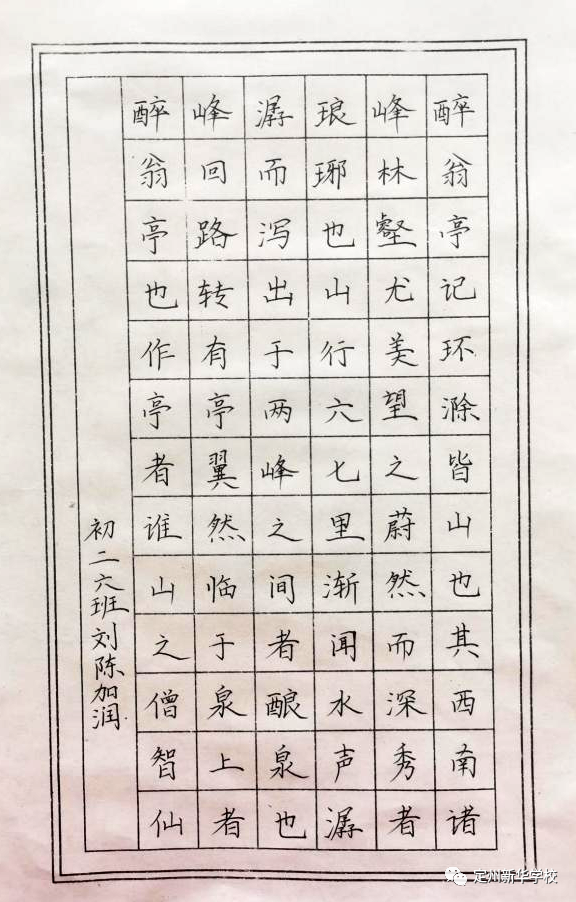 醉翁亭记环滁皆山也其西南诸
峰林壑尤美望之蔚然而深秀者
琅琊也山行六七里渐闻水声潺
潺而泻出于两峰之间者酿泉也
峰回路转有亭翼然临于泉上者
醉翁亭也作亭者谁山之僧智仙
初二六班刘陈加润
定州新华学校